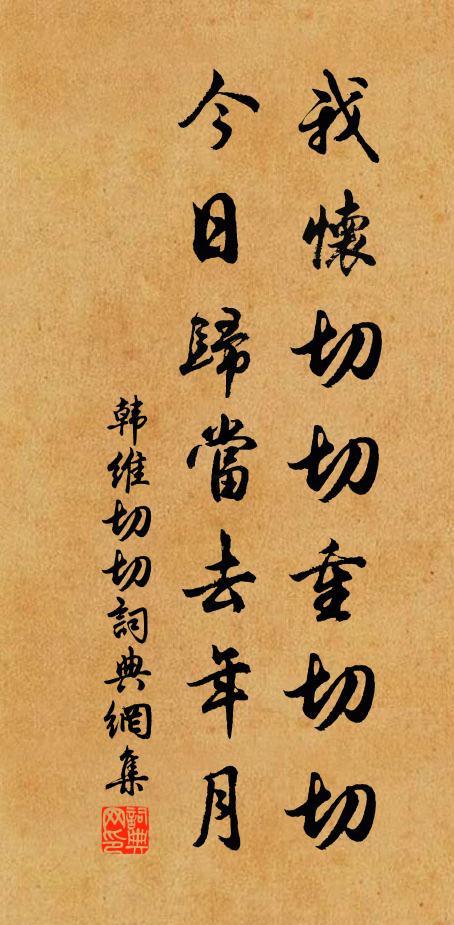 我懷切切重切切
今日歸當去年月
韩維切切詞典網集
詞典网印